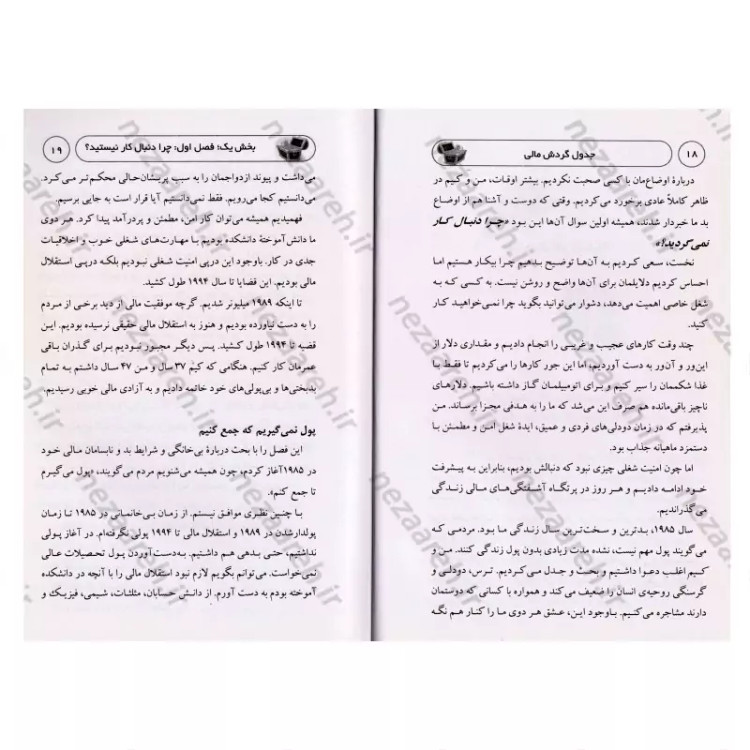 ۱۸
جدول گردش مالی
دربارهٔ اوضاع‌مان با کسی صحبت نکردیم. بیشتر اوقات، من و کیم در
ظاهر کاملاً عادی برخورد می‌کردیم. وقتی که دوست و آشنا هم از اوضاع
بد ما خبردار شدند، همیشه اولین سوال آن‌ها این بود «چرا دنبال کار
نمی‌گردید!»
نخست، سعی کردیم به آن‌ها توضیح بدهیم چرا بیکار هستیم اما
احساس کردیم دلایلمان برای آن‌ها واضح و روشن نیست. به کسی که به
شغل خاصی اهمیت می‌دهد، دشوار می‌توانید بگوید چرا نمی‌خواهید کار
کنید.
چند وقت کارهای عجیب و غریبی را انجام دادیم و مقداری دلار از
این‌ور و آن‌ور به دست آوردیم، اما این جور کارها را می‌کردیم تا فقط با
غذا شکممان را سیر کنیم و برای اتومبیلمان گاز داشته باشیم. دلارهای
ناچیز باقی‌مانده هم صرف این می‌شد که ما را به هدفی مجزا برساند. من
پذیرفتم که در زمان دودلی‌های فردی و عمیق، ایدهٔ شغل امن و مطمئن با
دستمزد ماهیانه جذاب بود.
اما چون امنیت شغلی چیزی نبود که دنبالش بودیم، بنابراین به پیشرفت
خود ادامه دادیم و هر روز در پرتگاه آشفتگی‌های مالی زندگی
می‌گذراندیم.
سال ۱۹۸۵، بدترین و سخت‌ترین سال زندگی ما بود. مردمی که
می‌گویند پول مهم نیست، نشده مدت زیادی بدون پول زندگی کنند. من و
کیم اغلب دعوا داشتیم و بحث و جدل می‌کردیم. ترس، دودلی و
گرسنگی روحیه‌ی انسان را ضعیف می‌کند و همواره با کسانی که دوستمان
دارند مشاجره می‌کنیم. باوجود این، عشق هر دوی ما را کنار هم نگه
بخش یک؛ فصل اول: چرا دنبال کار نیستید؟
۱۹
می‌داشت و پیوند ازدواجمان را به سبب پریشان‌حالی محکم‌تر می‌کرد.
می‌دانستیم کجا می‌رویم. فقط نمی‌دانستیم آیا قرار است به جایی برسیم.
فهمیدیم همیشه می‌توان کار امن، مطمئن و پردرآمد پیدا کرد. هر دوی
ما دانش‌آموختهٔ دانشکده بودیم با مهارت‌های شغلی خوب و اخلاقیات
جدی در کار. باوجود این درپی امنیت شغلی نبودیم بلکه درپی استقلال
مالی بودیم. این قضایا تا سال ۱۹۹۴ طول کشید.
تا اینکه ۱۹۸۹ میلیونر شدیم. گرچه موفقیت مالی از دید برخی از مردم
را به دست نیاورده بودیم و هنوز به استقلال مالی حقیقی نرسیده بودیم. این
قضیه تا ۱۹۹۴ طول کشید. پس دیگر مجبور نبودیم برای گذران باقی
عمرمان کار کنیم. هنگامی که کیم ۳۷ سال و من ۴۷ سال داشتم به تمام
بدبختی‌ها و بی‌پولی‌های خود خاتمه دادیم و به آزادی مالی خوبی رسیدیم.
پول نمی‌گیریم که جمع کنیم
این فصل را با بحث دربارهٔ بی‌خانگی و شرایط بد و نابسامان مالی خود
در ۱۹۸۵ آغاز کردم، چون همیشه می‌شنویم مردم می‌گویند، «پول می‌گیرم
تا جمع کنم».
با چنین نظری موافق نیستم. از زمان بی‌خانمانی در ۱۹۸۵ تا زمان
پولدارشدن در ۱۹۸۹ و استقلال مالی تا ۱۹۹۴ پولی نگرفته‌ام. در آغاز پولی
نداشتیم، حتی بدهی هم داشتیم. به‌دست‌آوردن پول تحصیلات عالی
نمی‌خواست. می‌توانم بگویم لازم نبود استقلال مالی را با آنچه در دانشکده
آموخته بودم به دست آورم. از دانش حسابان، مثلثات، شیمی، فیزیک و
nezaareh.ir